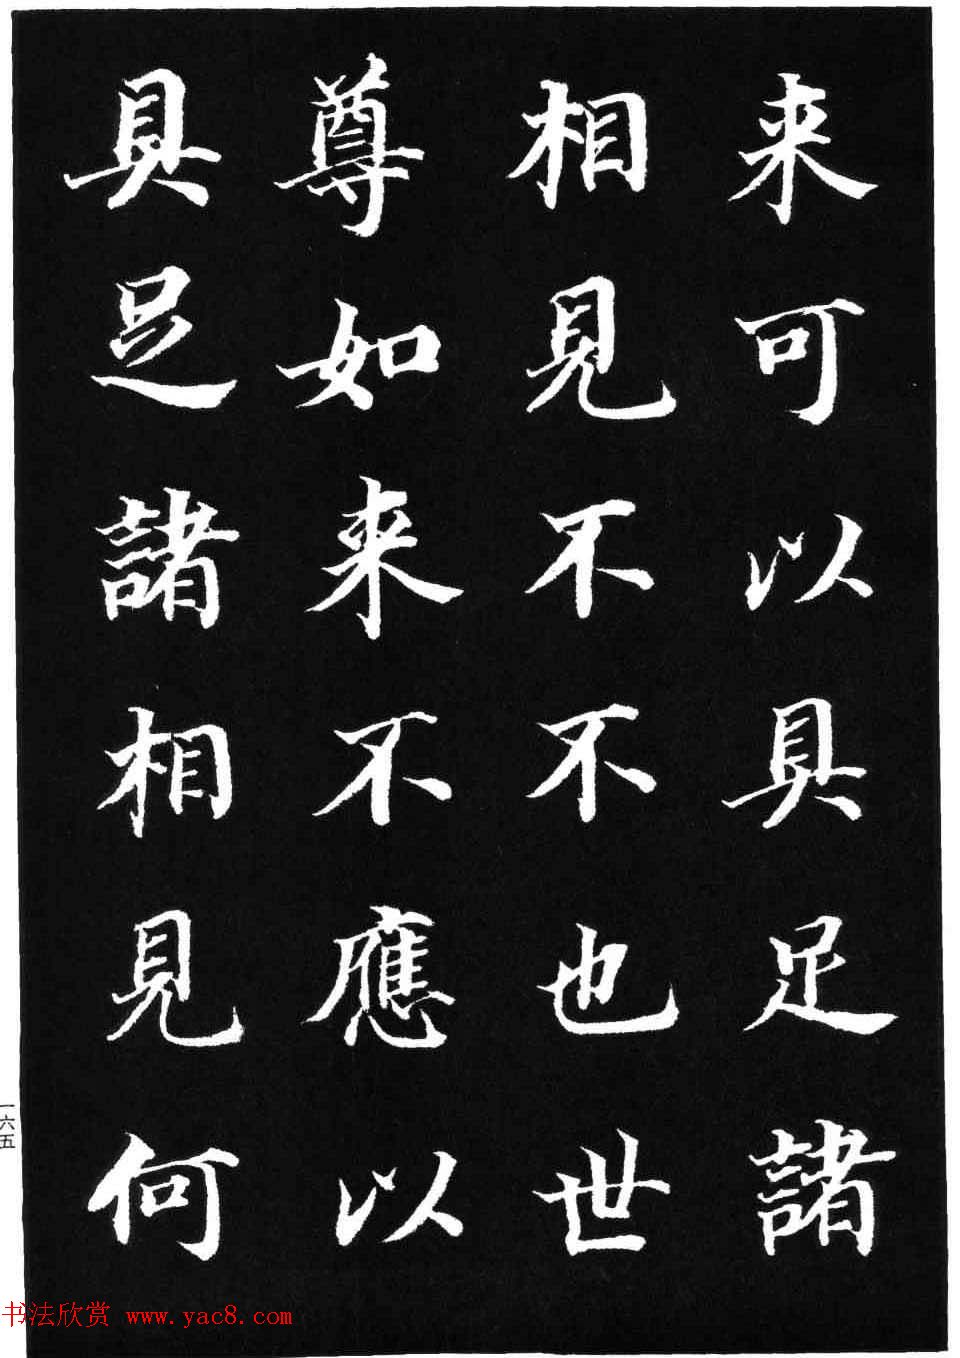 来可以具足諸
相見不不也世
尊如来不應以
具足諸相見何
一六五
书法欣赏 www.yac8.com